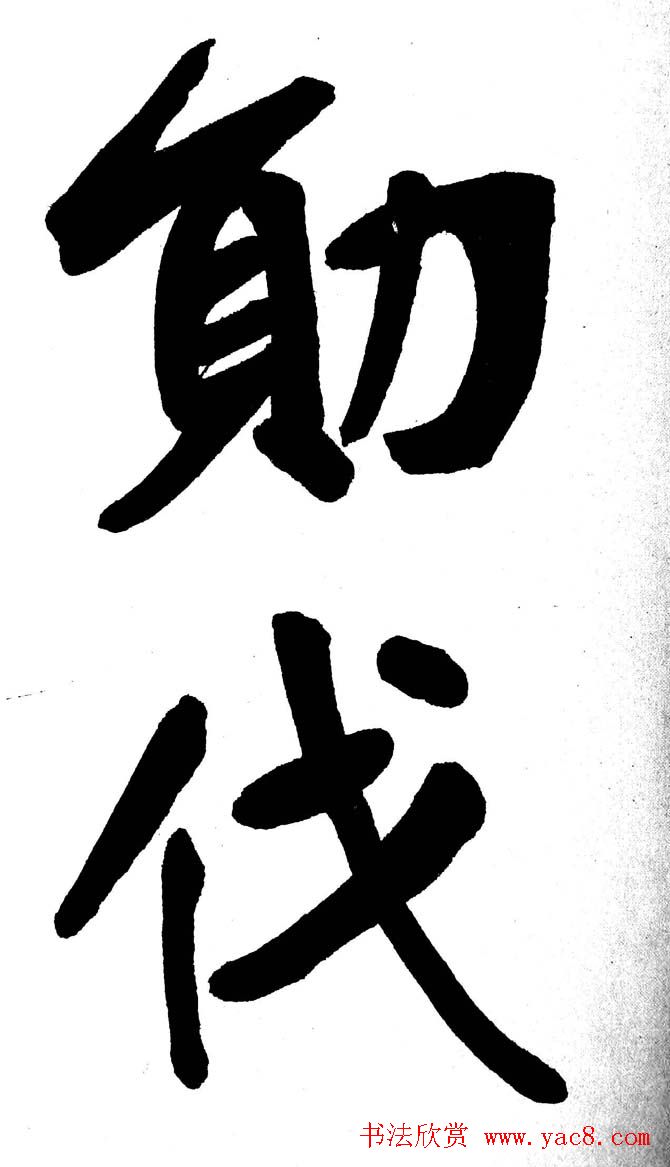 勛伐
书法欣赏 www.yac8.com